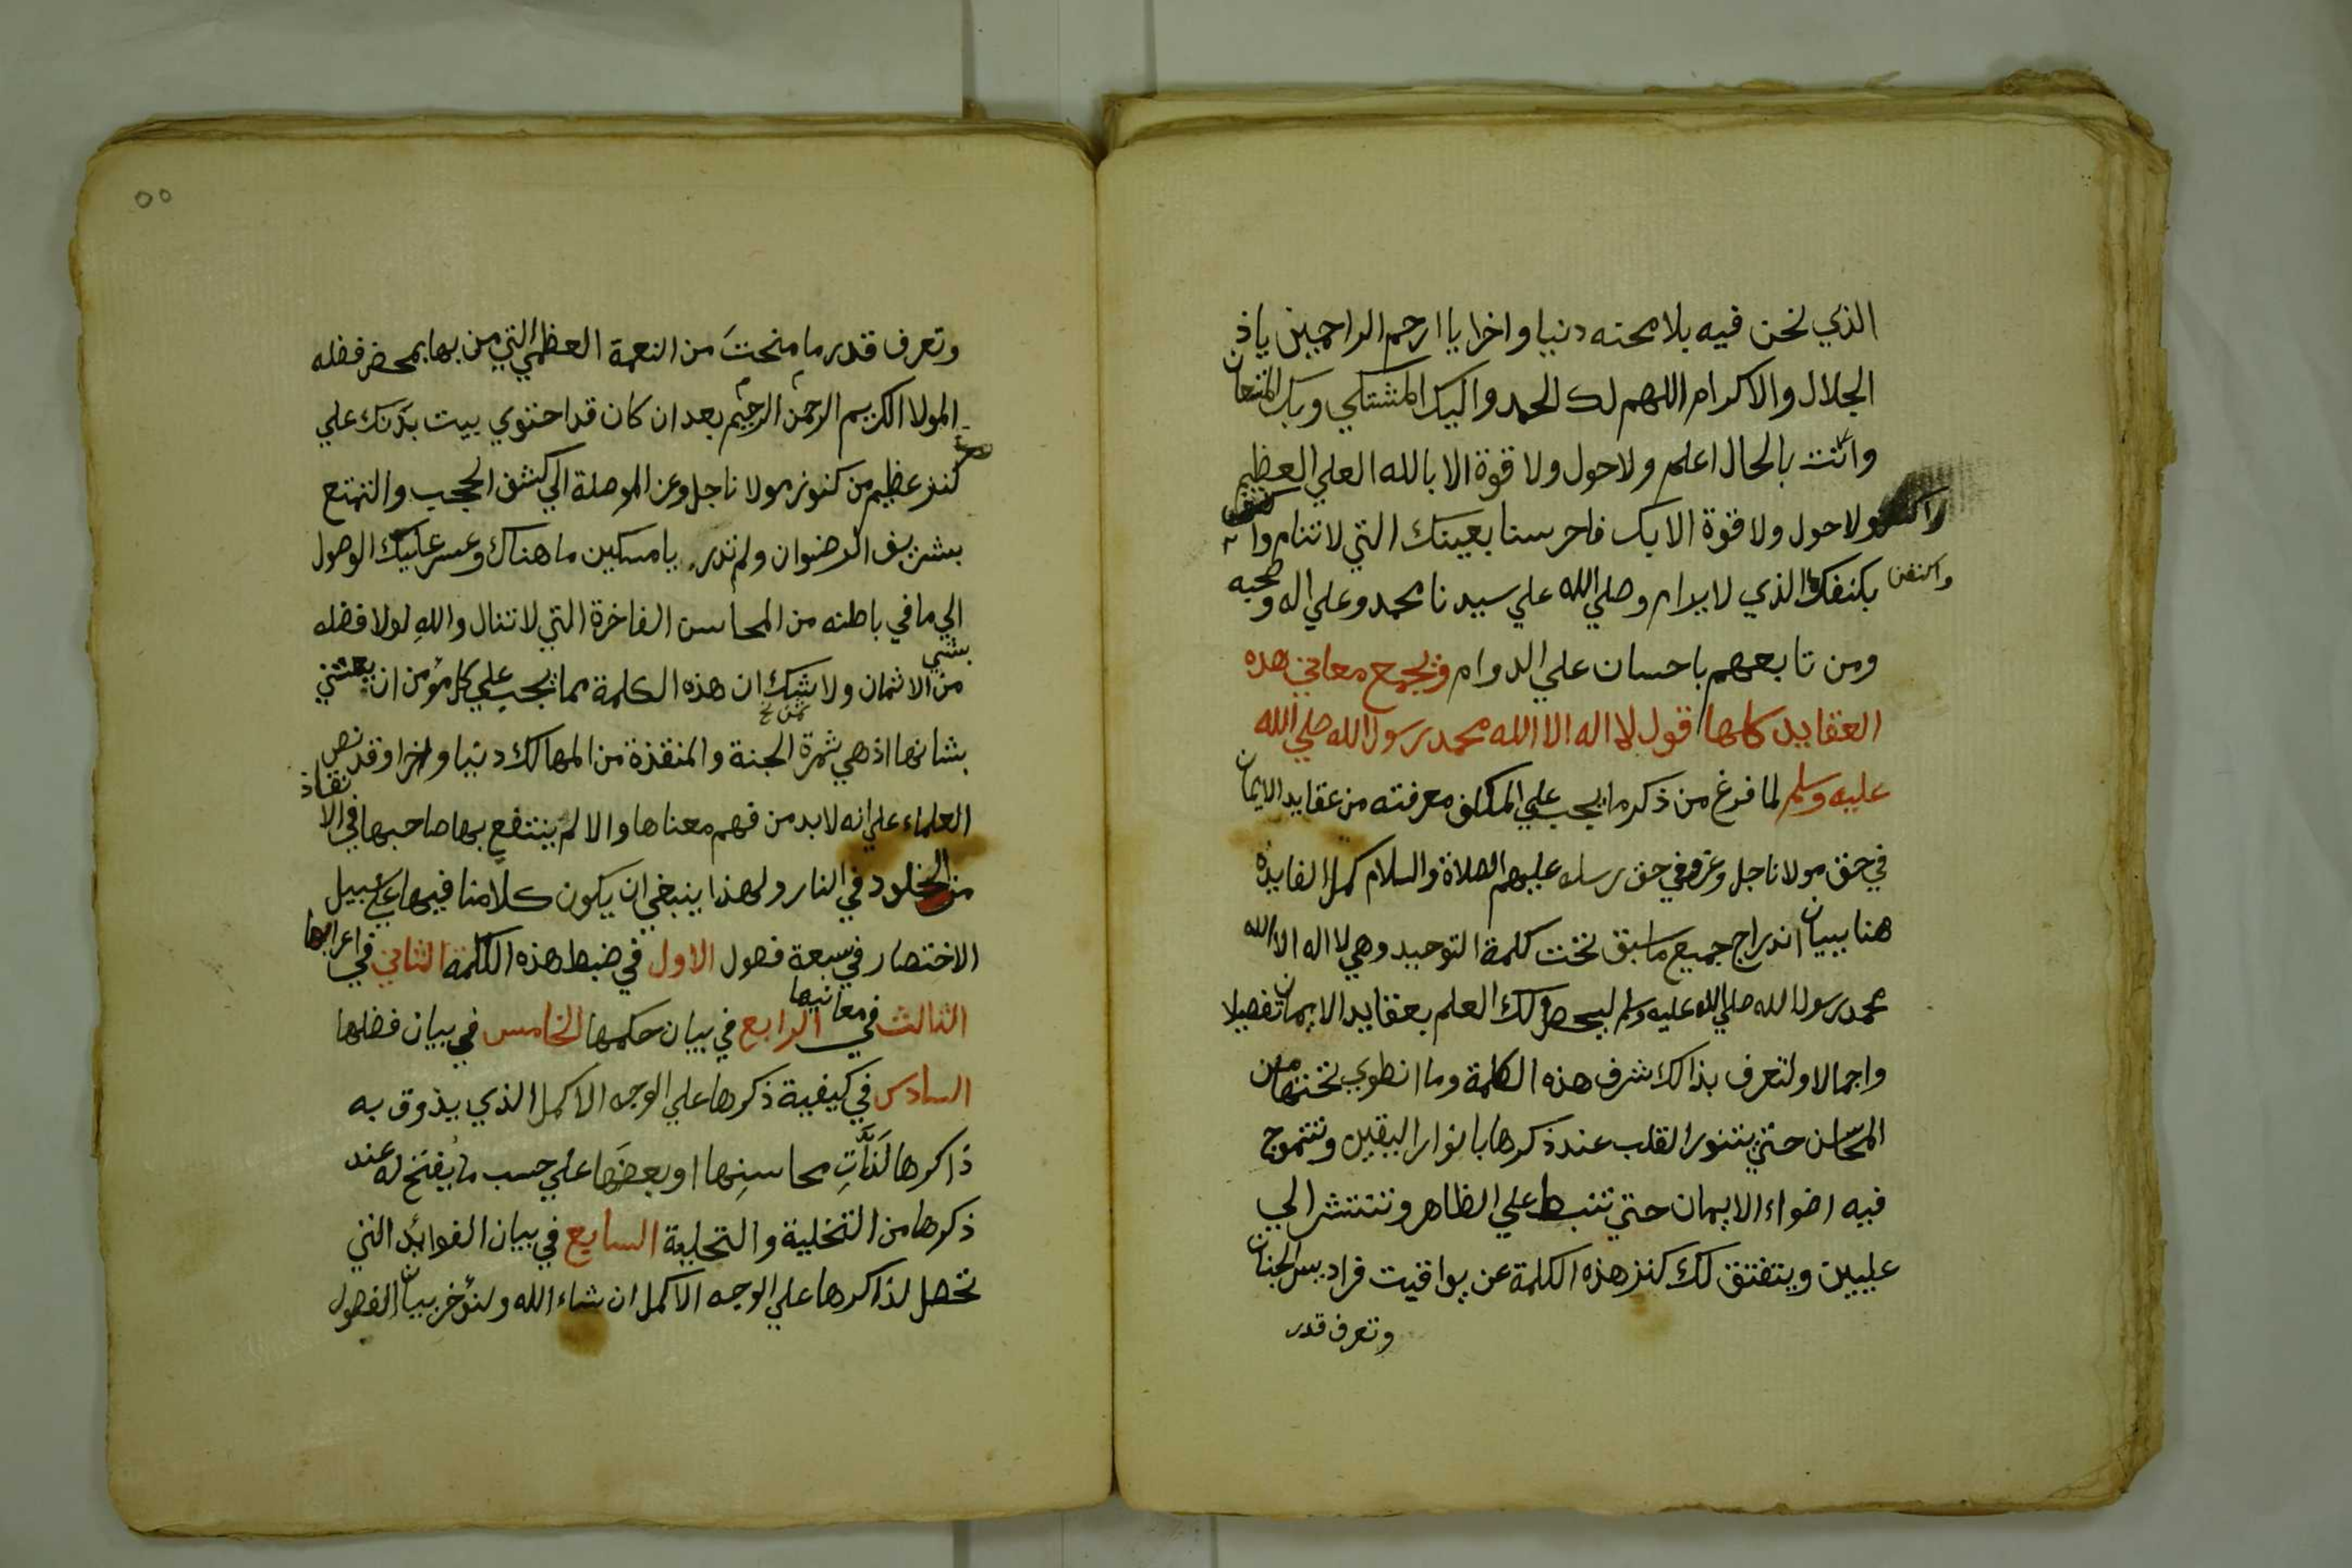 الذي نحن فيه بلا محنه دنيا واخرا يا ارحم الراحمين ياذ
الجلال والاكرام اللهم لك الحمد واليك المشتكي وبك المستعان
وانت بالحال اعلم ولا حول ولا قوة الا بالله العلي العظيم
ولا حول ولا قوة الا بك فاحرسنا بعينك التي لا تنام
واكنفنا بكنفك الذي لا يرام وصلي الله علي سيدنا محمد وعلي اله وصحبه
ومن تابعهم باحسان علي الدوام ويجمع معاني هذه
العقايد كلها قول لا اله الا الله محمد رسول الله صلي الله
عليه وسلم لما فرغ من ذكر ما يجب علي المكلف معرفته من عقايد الايمان
في حق مولانا جل وعز وفي حق رسله عليهم الصلاة والسلام كمل الفايدة
هنا ببيان اندراج جميع ما سبق تحت كلمة التوحيد وهي لا اله الا الله
محمد رسول الله صلي الله عليه وسلم ليحصل لك العلم بعقايد الايمان تفصيلا
واجمالا ولتعرف بذالك شرف هذه الكلمة وما انطوي تحتها من
المحاسن حتي يتنور القلب عند ذكرها بانوار اليقين وتتموج
فيه اضواء الايمان حتي تنبسط علي الظاهر وتنتشر الي
عليين وينفتق لك كنز هذه الكلمة عن يواقيت فراديس الجنان
وتعرف قدر
٥٥
وتعرف قدر ما منحتَ من النعمة العظمي التي من بها بمحض فضله
المولا الكريم الرحمن الرحيم بعد ان كان قد احتوي بيت بدنك علي
كنز عظيم من كنوز مولانا جل وعز الموصلة الي كشف الحجب والتمتع
بشريف الرضوان ولم تدر يا مسكين ما هناك وعسر عليك الوصول
الي ما في باطنه من المحاسن الفاخرة التي لا تنال واللهِ لولا فضله
بشي
من الاثمان ولا شك ان هذه الكلمة مما يجب علي كل مؤمن ان يعتني
بشانها اذ هي ثمرة الجنة والمنقذة من المهالك دنيا واخرا وقد نص
العلماء علي انه لابد من فهم معناها والا لم ينتفع بها صاحبها في الانقاذ
من الخلود في النار ولهذا ينبغي ان يكون كلامنا فيها علي سبيل
الاختصار في سبعة فصول الاول في ضبط هذه الكلمة الثاني في اعرابها
الثالث في معانيها الرابع في بيان حكمها الخامس في بيان فضلها
السادس في كيفية ذكرها علي الوجه الاكمل الذي يذوق به
ذاكرها لَذَّاتِ محاسنِها او بعضَها علي حسب ما يُفتح له عند
ذكرها من التخلية والتحلية السابع في بيان الفوائد التي
تحصل لذاكرها علي الوجه الاكمل ان شاء الله ولنؤخر بيان الفصول